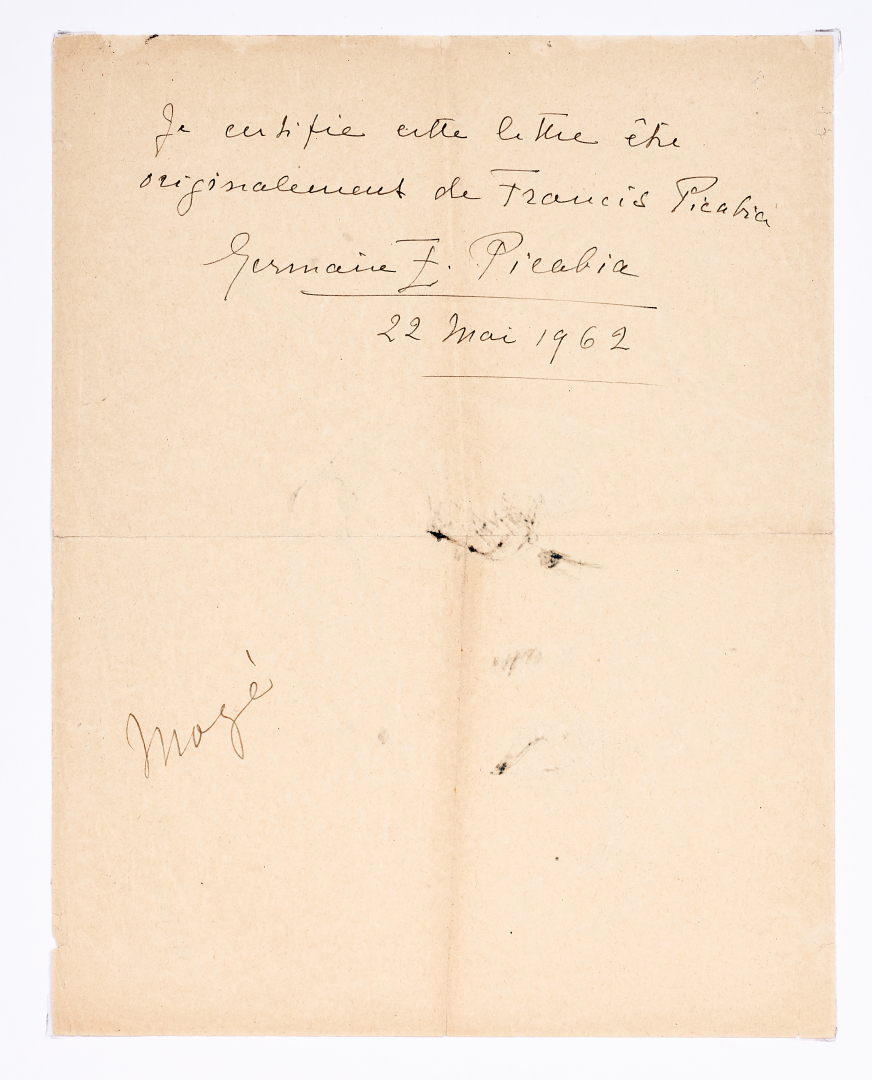 Je certifie cette lettre être
originalement de Francis Picabia
Germaine E. Picabia
22 Mai 1962
Mozé